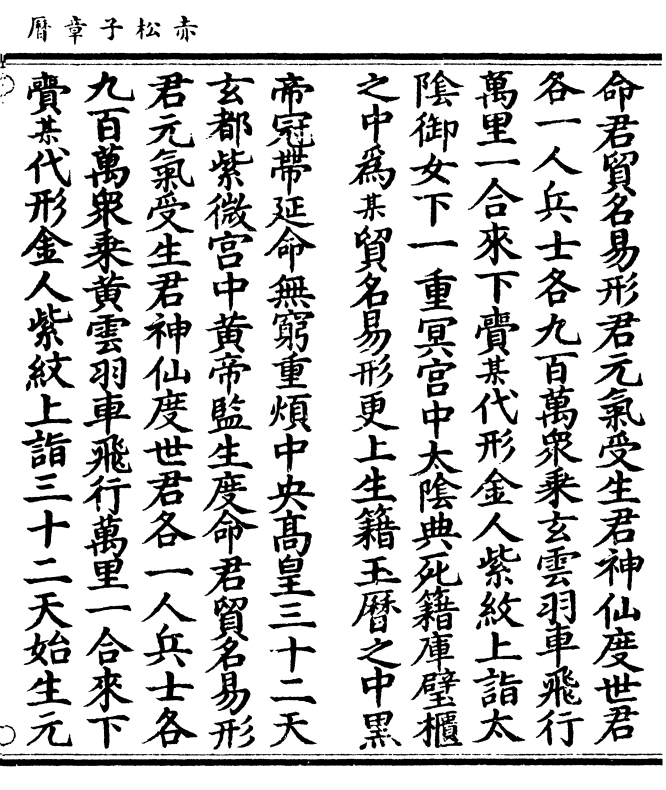 赤松子章曆
命君貿名易形君元氣受生君神仙度世君
各一人兵士各九百萬衆乗玄雲羽車飛行
萬里一合來下賷某代形金人紫紋上詣太
隂御女下一重冥宫中太隂典死籍庫壁櫃
之中爲某貿名易形更上生籍玉曆之中黒
帝冠帶延命無窮重煩中央髙皇三十二天
玄都紫微宫中黄帝監生度命君貿名易形
君元氣受生君神仙度世君各一人兵士各
九百萬衆乗黄雲羽車飛行萬里一合來下
賷某代形金人紫紋上詣三十二天始生元